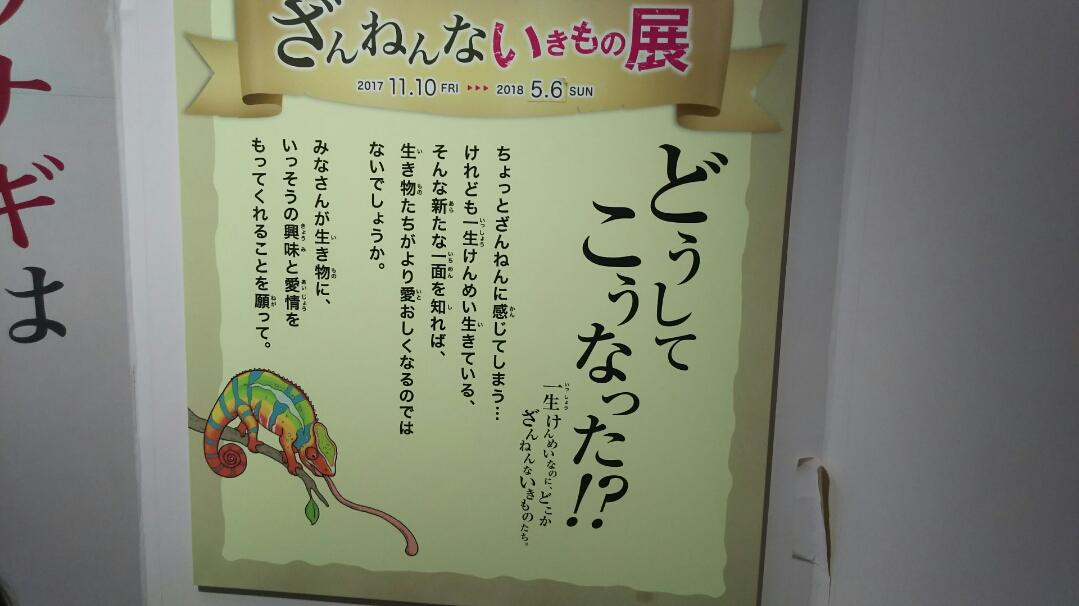 ざんねんないきもの展
2017 11.10 FRI ▸▸▸ 2018 5.6 SUN
どうして
こうなった!?
一生けんめいなのに、どこか
ざんねんないきものたち。
ちょっとざんねんに感じてしまう…
けれども一生けんめい生きている、
そんな新たな一面を知れば、
生き物たちがより愛おしくなるのでは
ないでしょうか。
みなさんが生き物に、
いっそうの興味と愛情を
もってくれることを願って。
ナギは